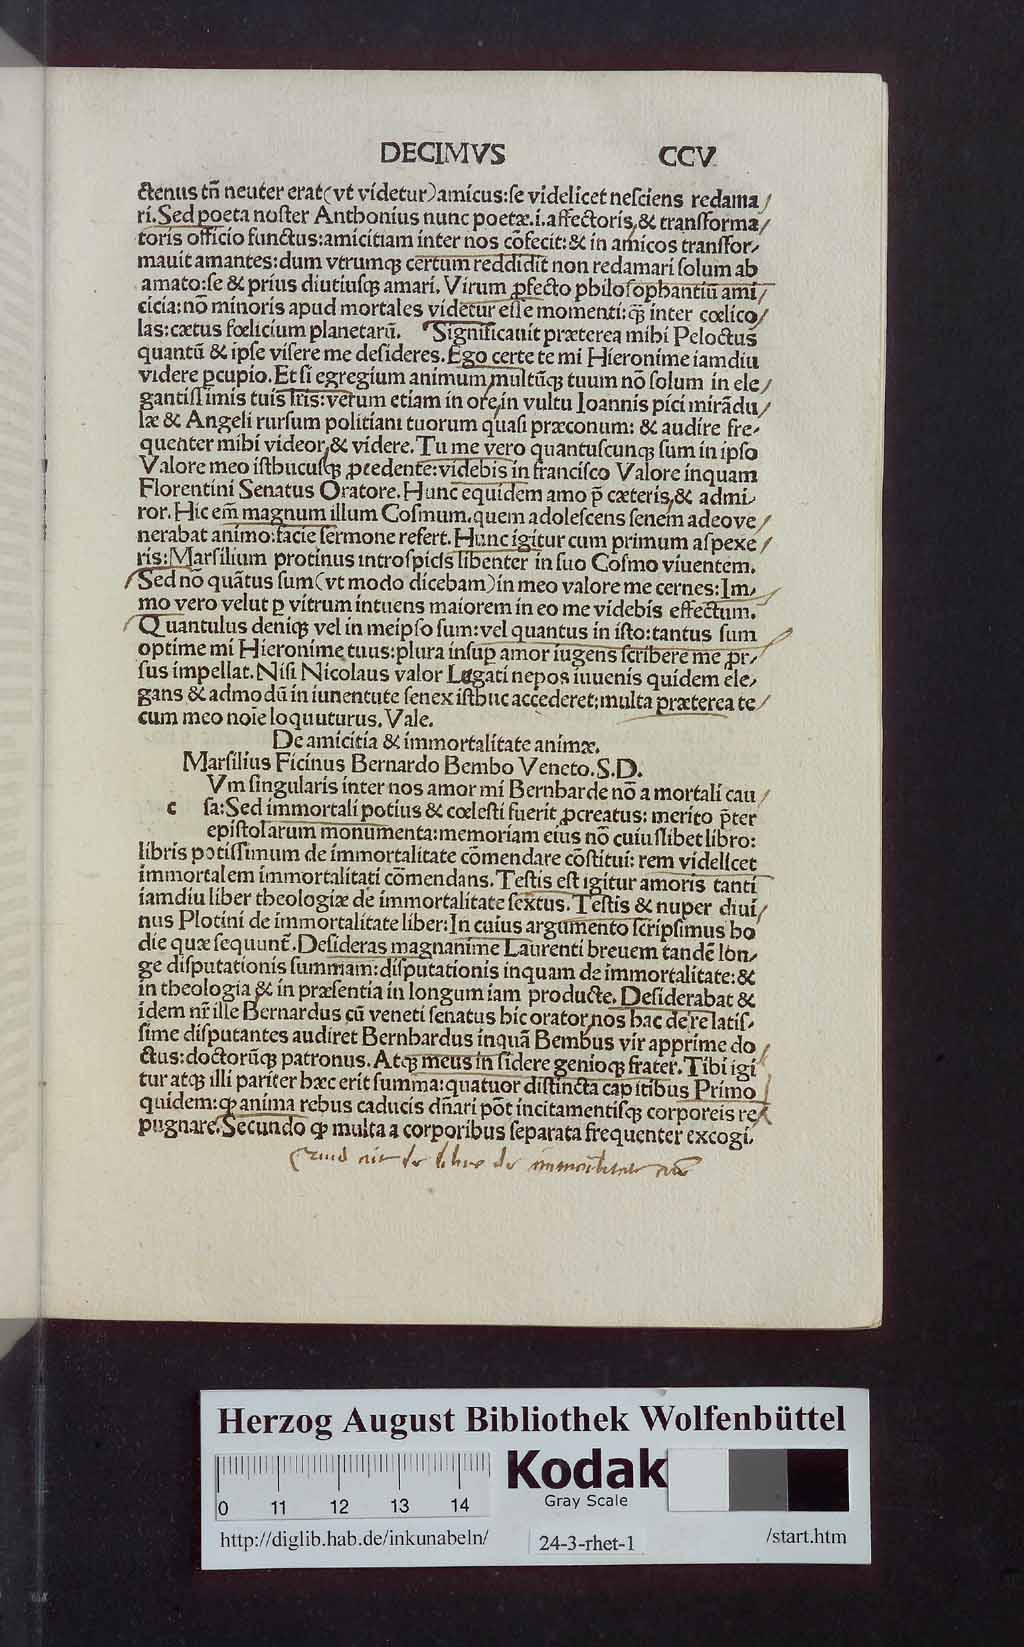 DECIMVS CCV
ctenus tn̄ neuter erat(vt videtur)amicus:se videlicet nesciens redama
ri.Sed poeta noster Anthonius nunc poetæ.i.affectoris,& transforma
toris officio functus:amicitiam inter nos cōfecit:& in amicos transfor-
mauit amantes:dum vtrumqꝫ certum reddidit non redamari solum ab
amato:se & prius diutiusqꝫ amari. Virum ꝓfecto philosophantiū ami
cicia:nō minoris apud mortales videtur esse momenti:q̄ꝫ inter cœlico
las:cætus fœlicium planetarū. Significauit præterea mihi Peloctus
quantū & ipse visere me desideres.Ego certe te mi Hieronime iamdiu
videre ꝑcupio.Et si egregium animum,multūqꝫ tuum nō solum in ele
gantissimis tuis lr̄is:verum etiam in ore,in vultu Ioannis pici mirādu
læ & Angeli rursum politiani tuorum quasi præconum: & audire fre-
quenter mihi videor,& videre.Tu me vero quantuscunqꝫ sum in ipso
Valore meo isthucusqꝫ ꝓcedente:videbis in francisco Valore inquam
Florentini Senatus Oratore.Hunc equidem amo p̄ cæteris,& admi-
ror.Hic em̄ magnum illum Cosmum,quem adolescens senem adeo ve
nerabat animo:facie sermone refert.Hunc igitur cum primum aspexe
ris:Marsilium protinus introspicis libenter in suo Cosmo viuentem.
Sed nō quātus sum(vt modo dicebam)in meo valore me cernes:Im-
mo vero velut ꝑ vitrum intuens maiorem in eo me videbis effectum.
Quantulus deniqꝫ vel in meipso sum:vel quantus in isto:tantus sum
optime mi Hieronime tuus:plura insuꝑ amor iugens scribere me ꝓr-
sus impellat.Nisi Nicolaus valor Legati nepos iuuenis quidem ele-
gans & admodū in iunentute senex isthuc accederet;multa præterea te
cum meo noīe loquuturus. Vale.
De amicitia & immortalitate animæ.
Marsilius Ficinus Bernardo Bembo Veneto.S.D.
Vm singularis inter nos amor mi Bernharde nō a mortali cau
c sa:Sed immortali potius & cœlesti fuerit ꝓcreatus: merito p̄ter
epistolarum monumenta:memoriam eius nō cuiuslibet libro:
libris potissimum de immortalitate cōmendare cōstitui: rem videlicet
immortalem immortalitati cōmendans.Testis est igitur amoris tanti
iamdiu liber theologiæ de immortalitate sextus.Testis & nuper diui
nus Plotini de immortalitate liber:In cuius argumento scripsimus ho
die quæ sequunt̄.Desideras magnanime Laurenti breuem tandē lon-
ge disputationis summam:disputationis inquam de immortalitate:&
in theologia & in præsentia in longum iam producte.Desiderabat &
idem nr̄ ille Bernardus cū veneti senatus hic orator,nos hac de re latis-
sime disputantes audiret Bernhardus inquā Bembus vir apprime do
ctus:doctorūqꝫ patronus.Atqꝫ meus in sidere genioqꝫ frater.Tibi igi
tur atqꝫ illi pariter hæc erit summa:quatuor distincta capitibus Primo
quidem:ꝙ anima rebus caducis dn̄ari pōt incitamentisqꝫ corporeis re
pugnare.Secundo ꝙ multa a corporibus separata frequenter excogi-
Herzog August Bibliothek Wolfenbüttel
0 11 12 13 14
Kodak
Gray Scale
http://diglib.hab.de/inkunabeln/ 24-3-rhet-1 /start.htm